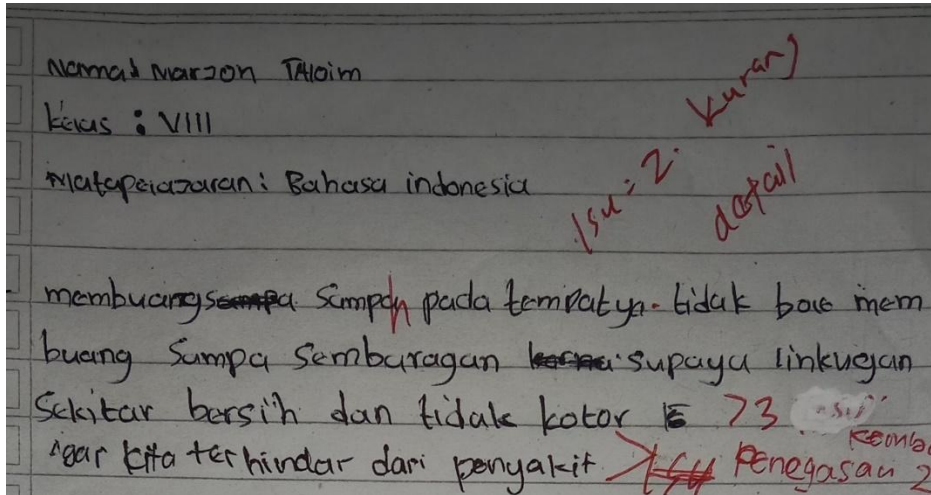 Nama: Marson TAloim
Kelas : VIII
Matapelazaran: Bahasa indonesia
Isu : 2. Kurang
detail
membuang sampah pada tempatya. tidak bole mem
buang Sampa Sembaragan supaya linkugan
Sekitar bersih dan tidak kotor >3
Agar kita terhindar dari penyakit > Penegasan 2